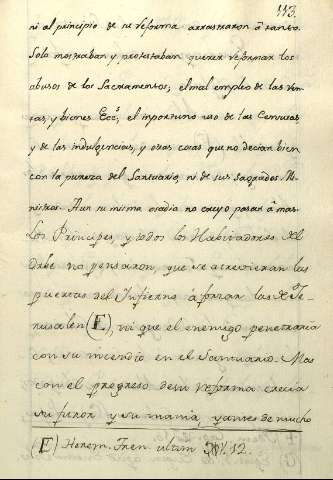 113.
ni al principio de su reforma arrastraron á tanto.
Solo mostraban y protestaban querer reformar los
abusos de los Sacramentos, el mal empleo de las ren-
tas, y bienes Ecc.s, el inportuno uso de las Censuras,
y de las indulgencias, y otras cosas que no decian bien
con la pureza del Santuario, ni de sus sagrados Mi-
nistros. Aun su misma osadia no creyo pasar á mas.
Los Principes, y todos los Habitadores del
Orbe no pensaron, que se atrevieran las
puertas del Infierno á forzar las de Je-
rusalen (E), ni que el enemigo penetraria
con su incendio en el Santuario. Mas
con el progreso de su reforma crecia
su furor y su mania, y antes de mucho
(E) Herem. Tren. ultim. 12.